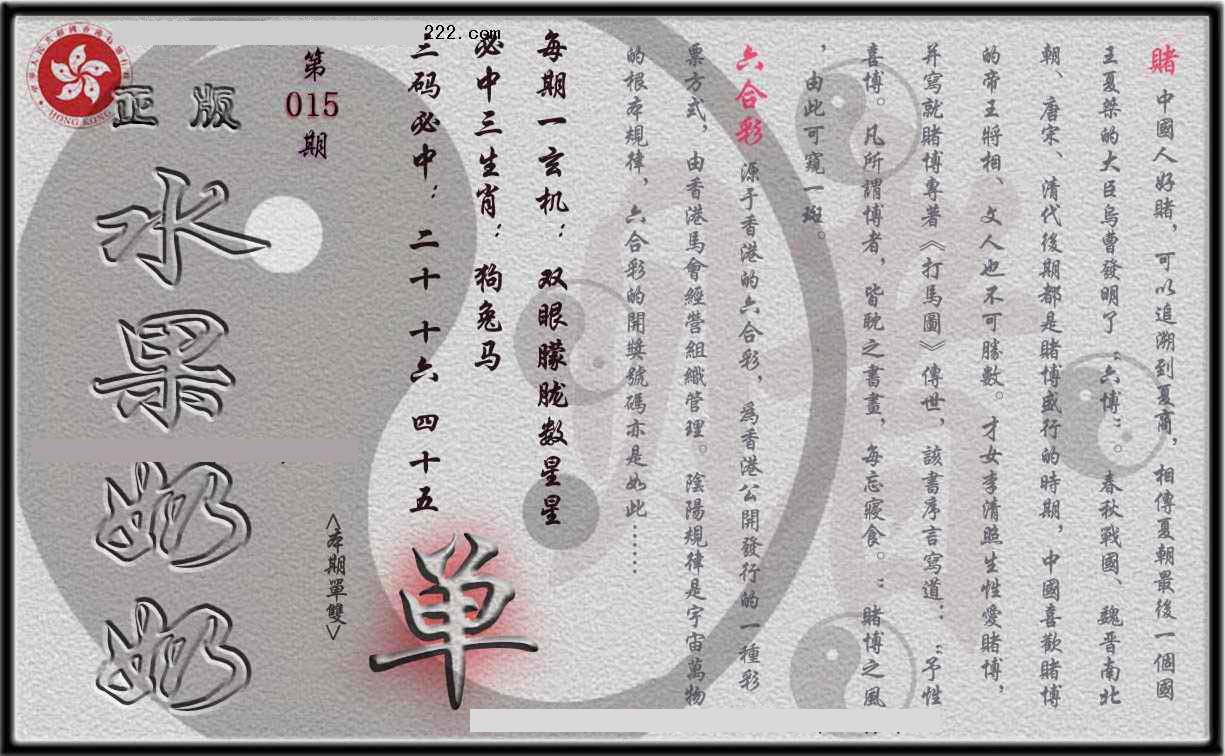 222.com
賭 中國人好賭，可以追溯到夏商，相傳夏朝最後一個國
王夏桀的大臣烏曹發明了“六博”。春秋戰國、魏晋南北
朝、唐宋、清代後期都是賭博盛行的時期，中國喜歡賭博
的帝王將相、文人也不可勝數。才女李清照生性愛賭博，
并寫就賭博專著《打馬圖》傳世，該書序言寫道：“予性
喜博。凡所謂博者，皆耽之書畫，每忘寢食。”賭博之風
，由此可窺一斑。
六合彩 源于香港的六合彩，爲香港公開發行的一種彩
票方式，由香港馬會經營組織管理。陰陽規律是宇宙萬物
的根本規律，六合彩的開獎號碼亦是如此……
每期一玄机：双眼朦胧数星星
必中三生肖：狗兔马
三码必中：二十 十六 四十五
单
<本期單雙>
第
015
期
正版
水果奶奶
HONG KONG